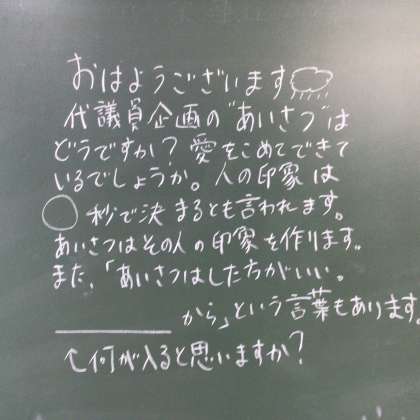 おはようございます
代議員企画の"あいさつ"は
どうですか？愛をこめてできて
いるでしょうか。人の印象は
○秒で決まるとも言われます。
あいさつはその人の印象を作ります。
また、「あいさつはした方がいい。
から」という言葉もあります。
↑何が入ると思いますか？